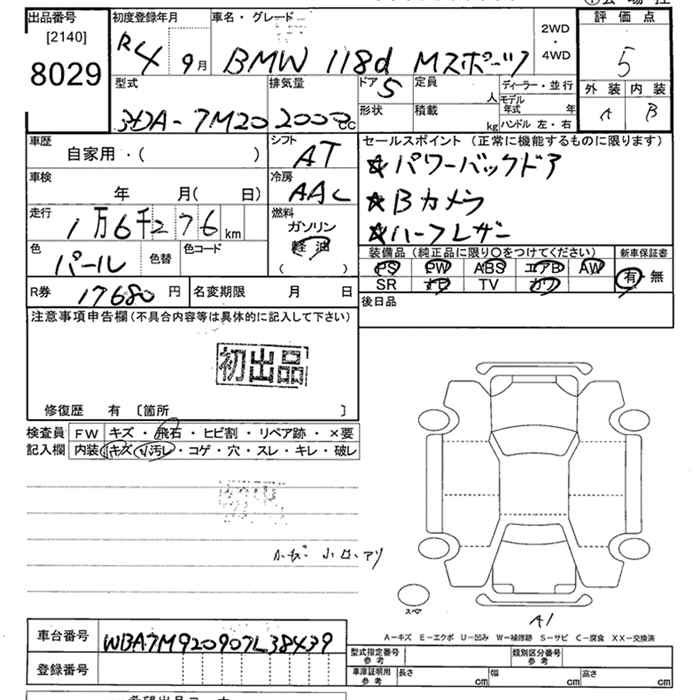 出品番号 初度登録年月 車名・グレード 評価点
[2140]
8029
R4 9月 BMW 118d Mスポーツ 2WD・4WD 5
型式 排気量 ドア 5 定員 人 ディーラー・並行 外装 内装
モデル年式 年
3DA-7M20 2000cc 形状 積載 kg ハンドル 左・右 A B
車歴 シフト セールスポイント (正常に機能するものに限ります)
自家用・( ) AT ★パワーバックドア
車検 冷房
年 月( 日) AAC ★Bカメラ
走行 燃料
1万6千276km ガソリン ★ハーフレザー
色 色替 色コード 軽油 装備品 (純正品に限り○をつけてください) 新車保証書
パール ( ) PS PW ABS エアB AW 有・無
SR ナビ TV カワ
R券 17680円 名変期限 月 日 後日品
注意事項申告欄(不具合内容等は具体的に記入して下さい)
初出品
修復歴 有 〔箇所 〕
検査員 FW キズ・飛石・ヒビ割・リペア跡・×要
記入欄 内装 キズ・汚レ・コゲ・穴・スレ・キレ・破レ
スペア
A1
A-キズ E-エクボ U-凹み W-補修跡 S-サビ C-腐食 XX-交換済
車台番号 WBA7M920907L38439
登録番号
型式指定番号 参考 類別区分番号 参考
車庫証明用 参考 長さ cm 幅 cm 高さ cm